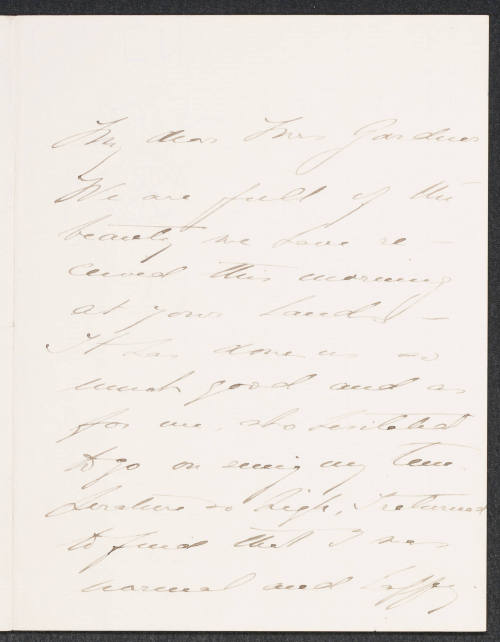 My dear Mrs Gardner
We are full of the
beauty we have re -
ceived this morning
at your hands -
It has done us so
much good and as
for me, who hesitated
to go on seeing my tem-
perature so high, I returned
to find that I was
normal and happy.